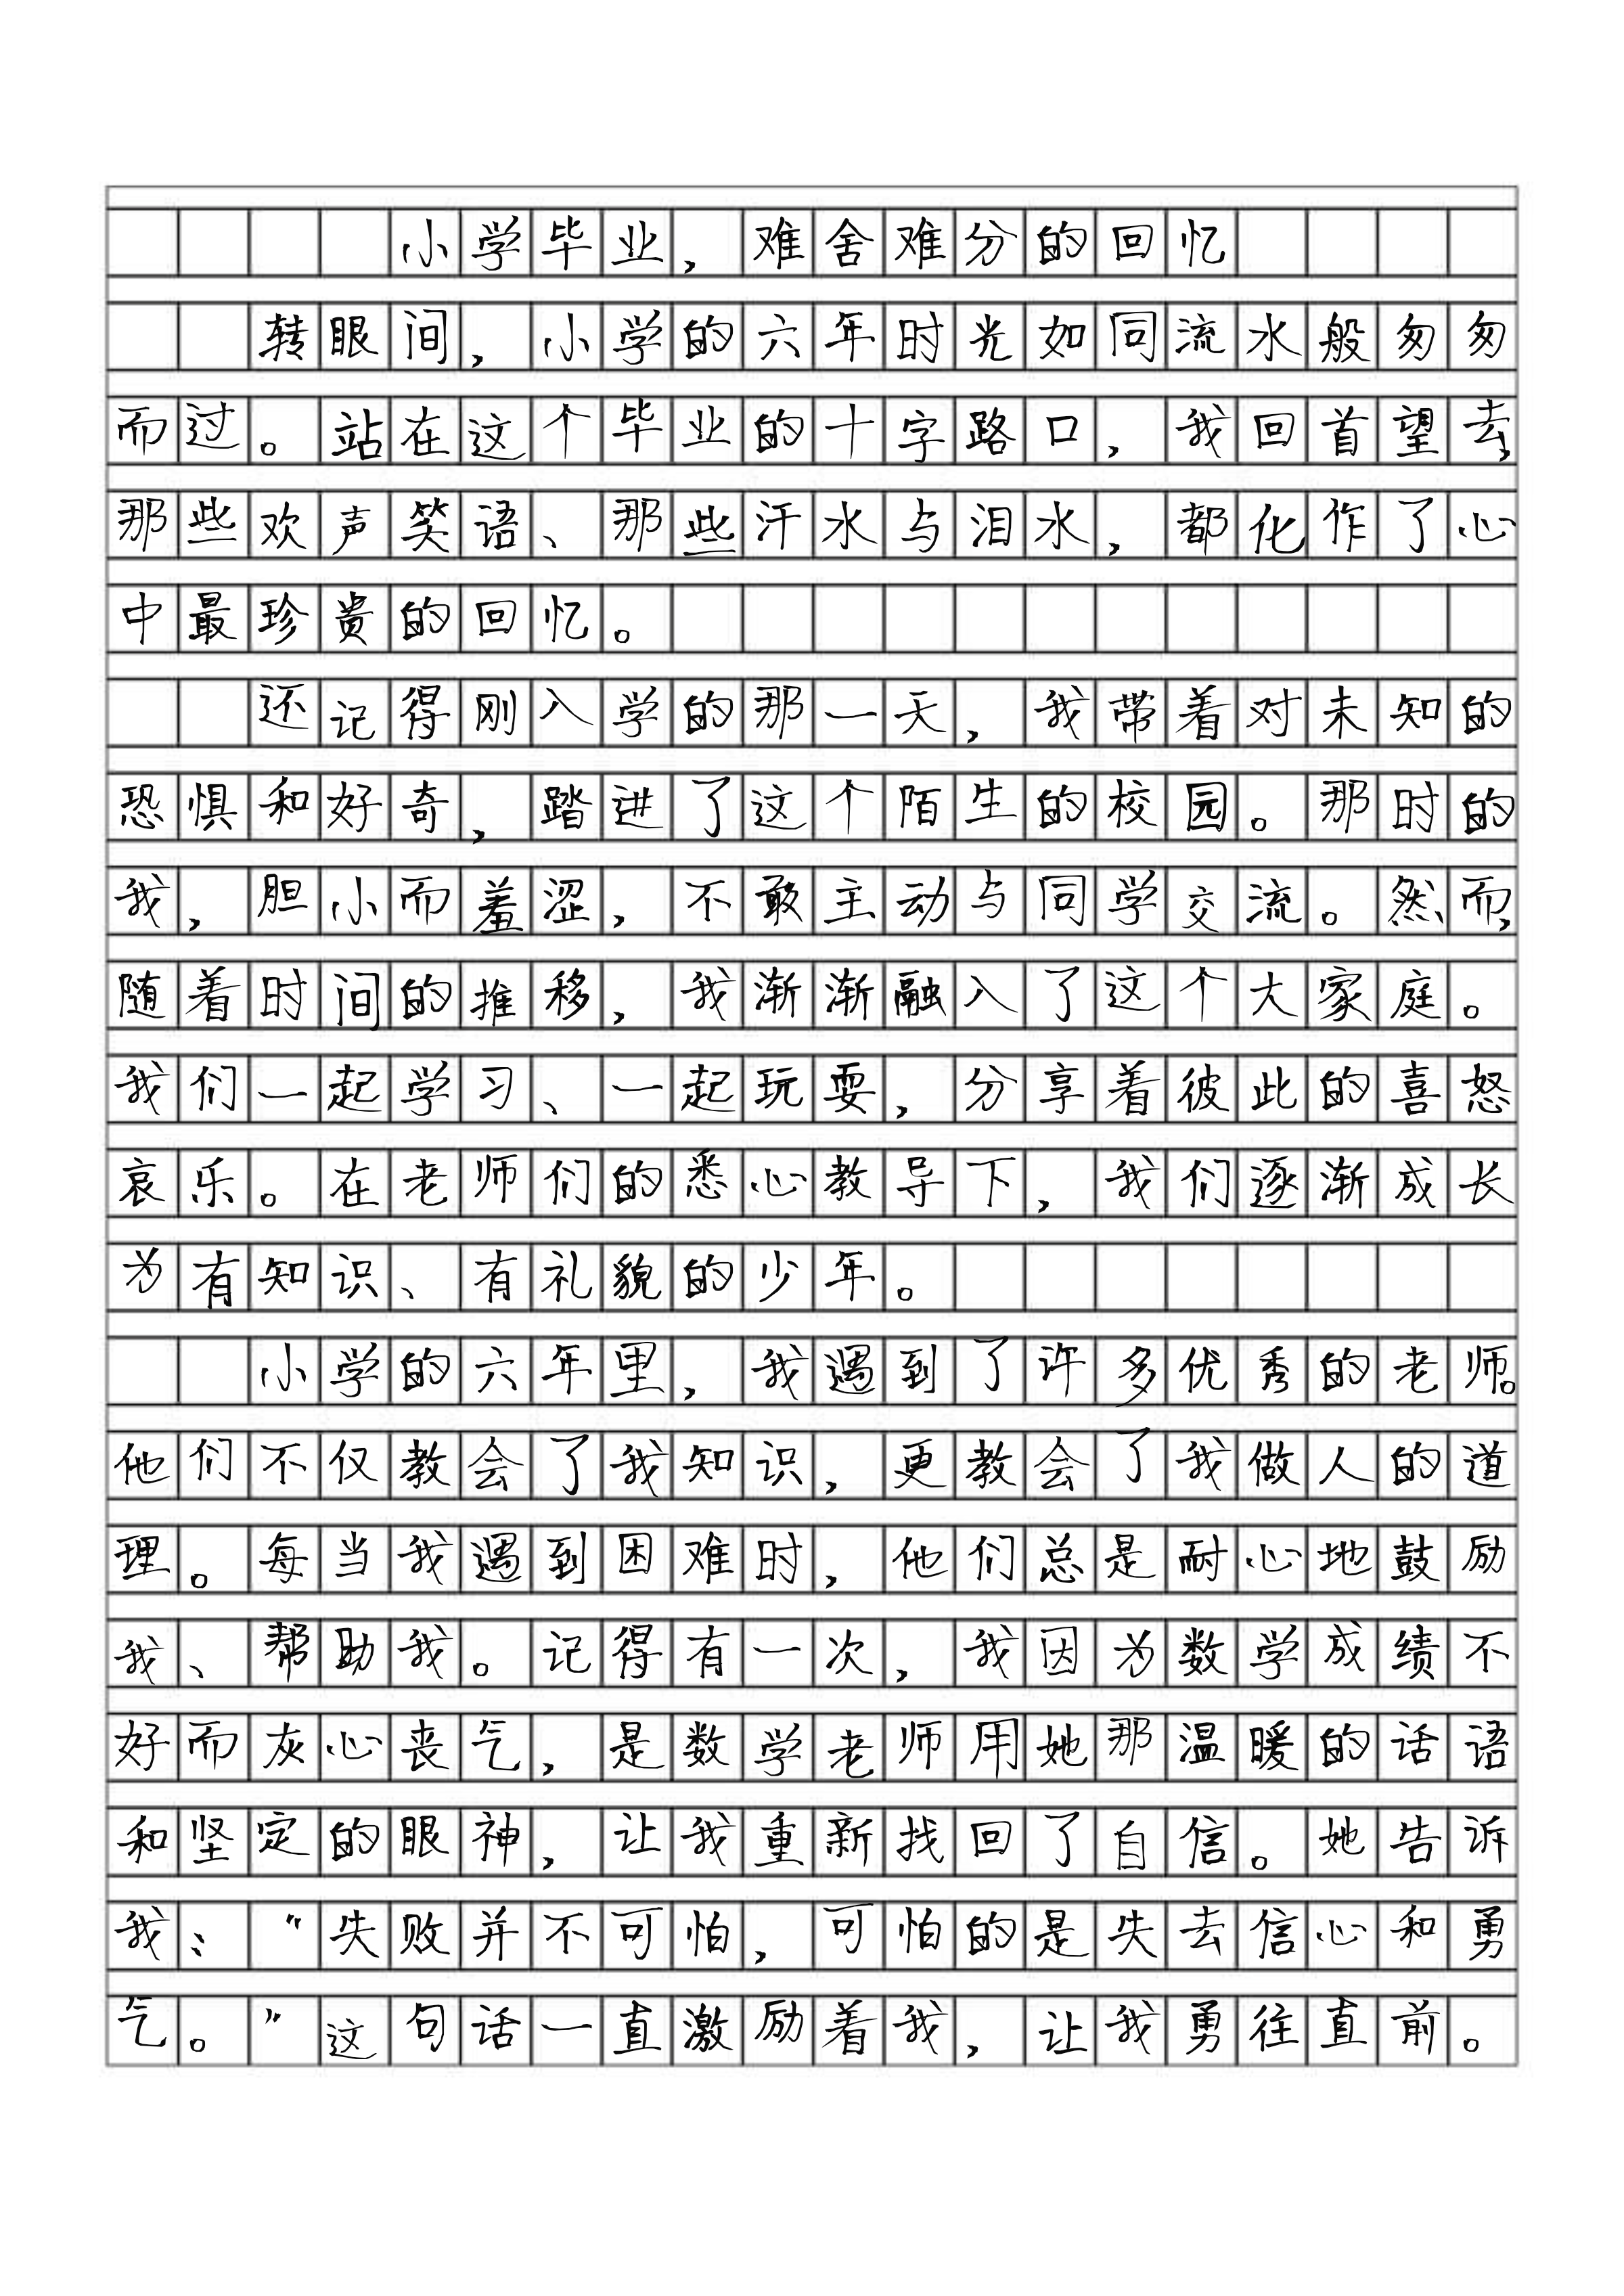 小学毕业，难舍难分的回忆
转眼间，小学的六年时光如同流水般匆匆
而过。站在这个毕业的十字路口，我回首望去，
那些欢声笑语、那些汗水与泪水，都化作了心
中最珍贵的回忆。
还记得刚入学的那一天，我带着对未知的
恐惧和好奇，踏进了这个陌生的校园。那时的
我，胆小而羞涩，不敢主动与同学交流。然而，
随着时间的推移，我渐渐融入了这个大家庭。
我们一起学习、一起玩耍，分享着彼此的喜怒
哀乐。在老师们的悉心教导下，我们逐渐成长
为有知识、有礼貌的少年。
小学的六年里，我遇到了许多优秀的老师。
他们不仅教会了我知识，更教会了我做人的道
理。每当我遇到困难时，他们总是耐心地鼓励
我、帮助我。记得有一次，我因为数学成绩不
好而灰心丧气，是数学老师用她那温暖的话语
和坚定的眼神，让我重新找回了自信。她告诉
我：“失败并不可怕，可怕的是失去信心和勇
气。”这句话一直激励着我，让我勇往直前。